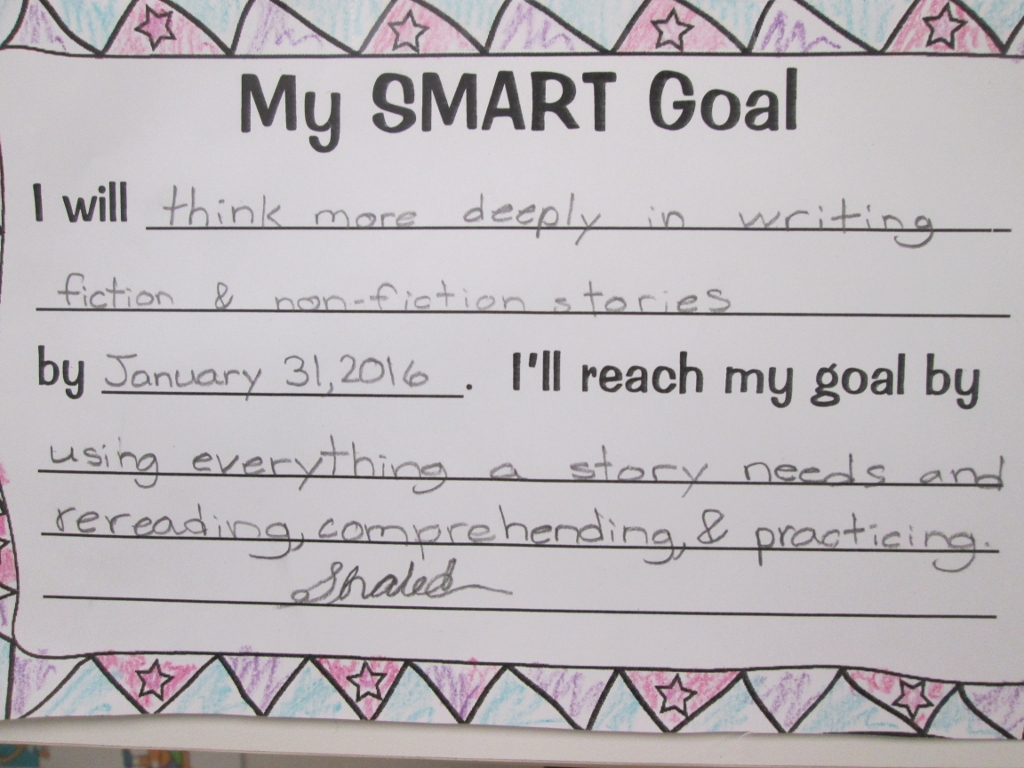 My SMART Goal
I will think more deeply in writing
fiction & non-fiction stories
by January 31, 2016. I'll reach my goal by
using everything a story needs and
rereading, comprehending, & practicing.